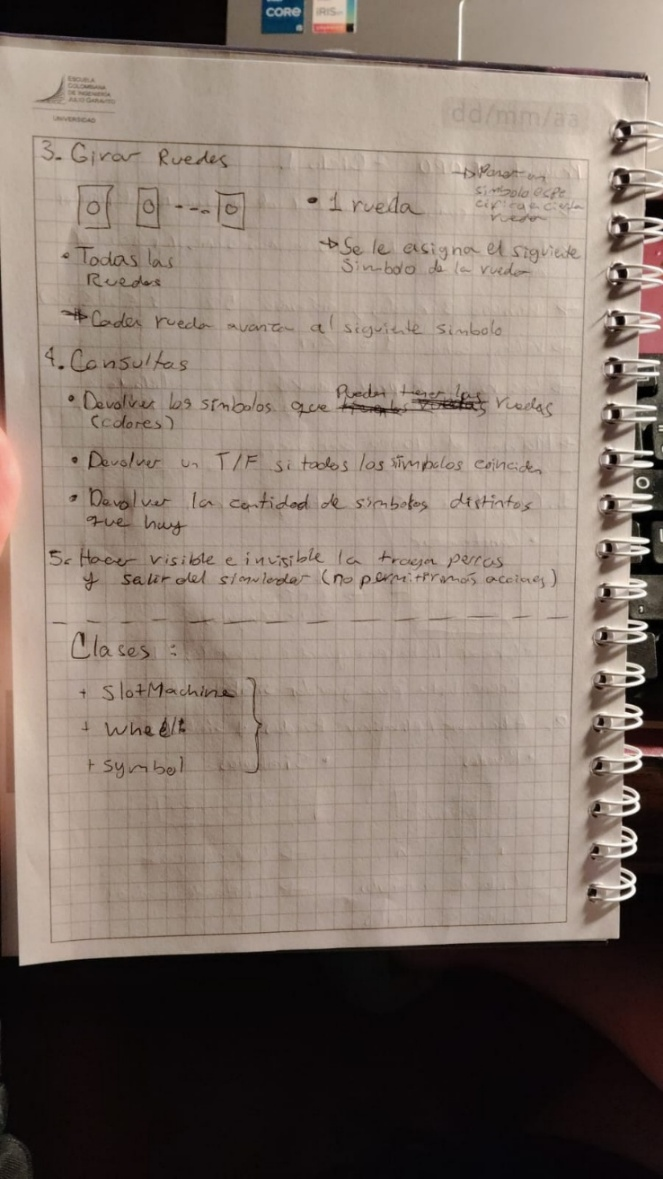 CORE
IRIS
ESCUELA
COLOMBIANA
DE INGENIERÍA
JULIO GARAVITO
UNIVERSIDAD
dd/mm/aa
3. Girar Ruedas
→ Poner un
simbolo
cierta
rueda
O O ---- O
• 1 rueda
→ Se le asigna el siguiente
Simbolo de la rueda
• Todas las
Ruedas
→ Cada rueda avanza al siguiente simbolo
4. Consultas
• Devolver los símbolos que Pueden tener las ruedas
(colores)
• Devolver un T/F si todos los símbolos coinciden
• Devolver la cantidad de símbolos distintos
que hay
5. Hacer visible e invisible la traga perras
y salir del simulador (no permitir más acciones)
Clases :
+ SlotMachine
+ Wheel
+ Symbol